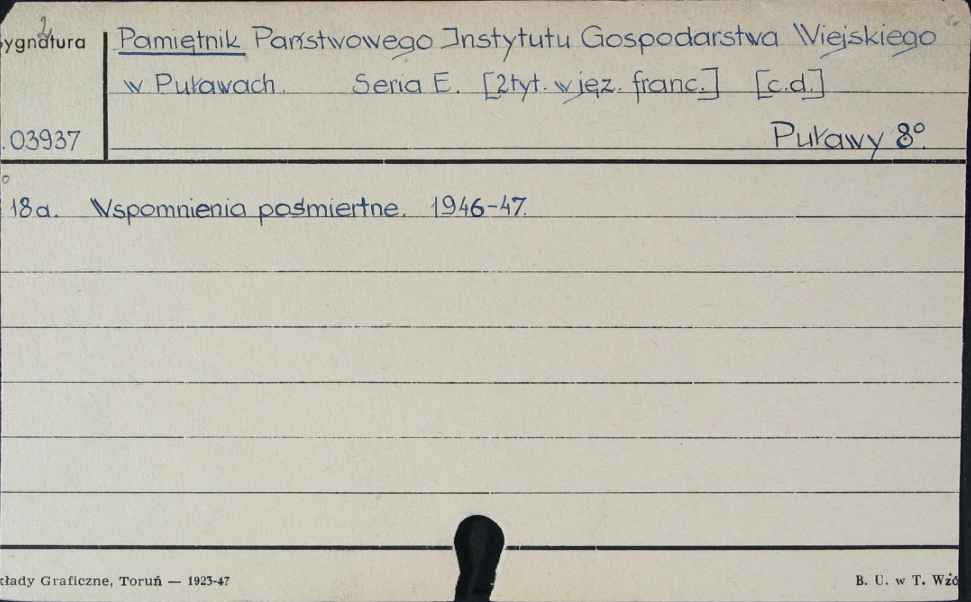 2
ygnatura
Pamiętnik Państwowego Instytutu Gospodarstwa Wiejskiego
w Puławach. Seria E. [2 tyt. w jęz. franc.] [c.d.]
.03937
Puławy 8º.
18a. Wspomnienia pośmiertne. 1946-47.
kłady Graficzne, Toruń — 1923-47
B. U. w T. Wzó